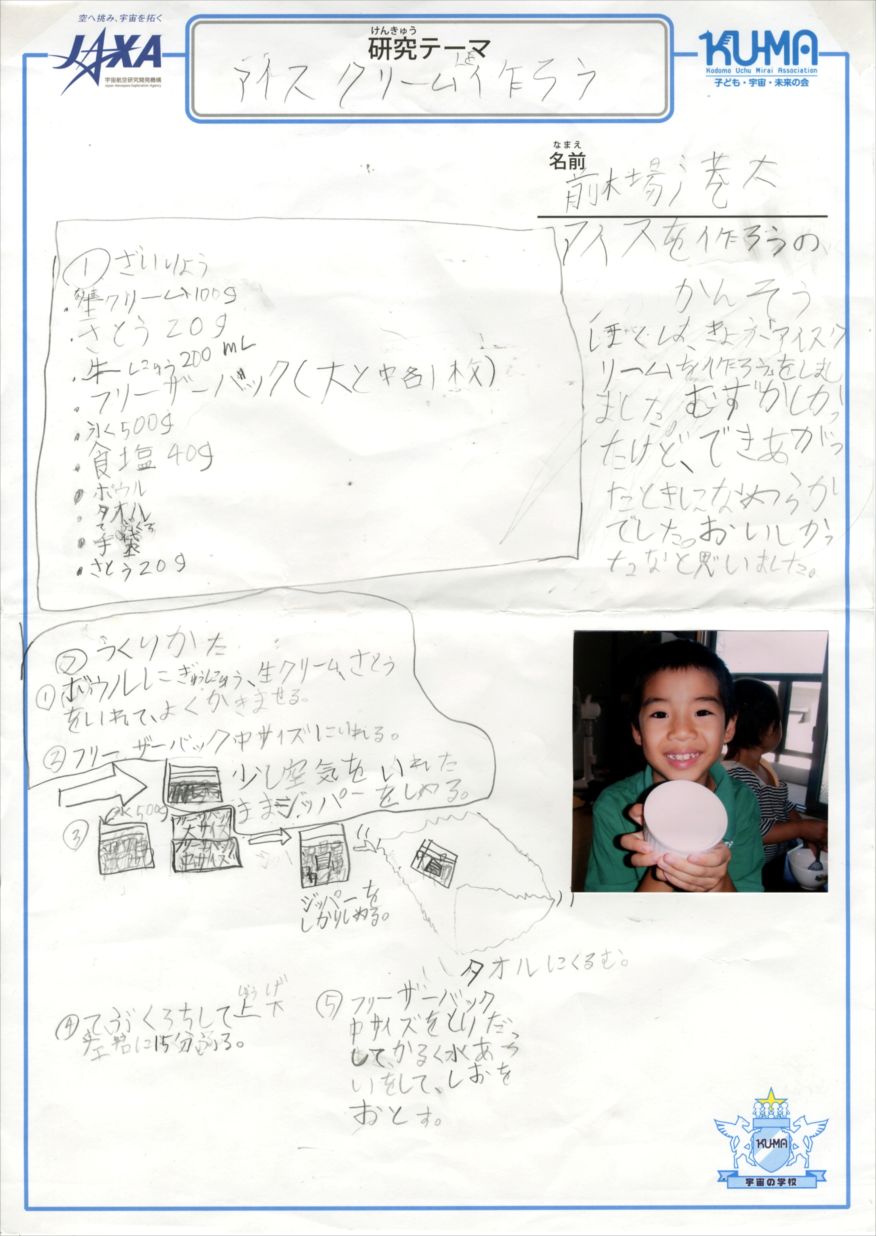 空へ挑み、宇宙を拓く
JAXA
宇宙航空研究開発機構
Japan Aerospace Exploration Agency
けんきゅう
研究テーマ
アイスクリームを作ろう
KU-MA
Kodomo Uchu Mirai Association
子ども・宇宙・未来の会
なまえ
名前
前木場
大
① ざいりょう
・生クリーム100g
・さとう20g
・牛にゅう200mL
・フリーザーバック(大と中各1枚)
・氷500g
・食塩40g
・ボウル
・タオル
・手袋
・さとう20g
アイスを作ろうの
かんそう
ぼくは、きょう、アイスク
リームを作ろうをしまし
ました。むずかしかっ
たけど、できあが
たときに
でした。おいしかっ
たなと思いました。
② つくりかた
①ボウルにぎゅうにゅう、生クリーム、さとう
をいれて、よくかきませる。
②フリーザーバック中サイズにいれる。
少し空気をいれた
ままジッパーをしめる。
③
氷500g
フリーザーバック
大サイズ
フリーザーバック
中サイズ
ジッパーを
しかりしめる。
タオルにくるむ。
④てぶくろちして上下
左右に15分ふる。
⑤フリーザーバック
中サイズをとりだ
して、かるく水あら
いをして、しおを
おとす。
KU-MA
宇宙の学校